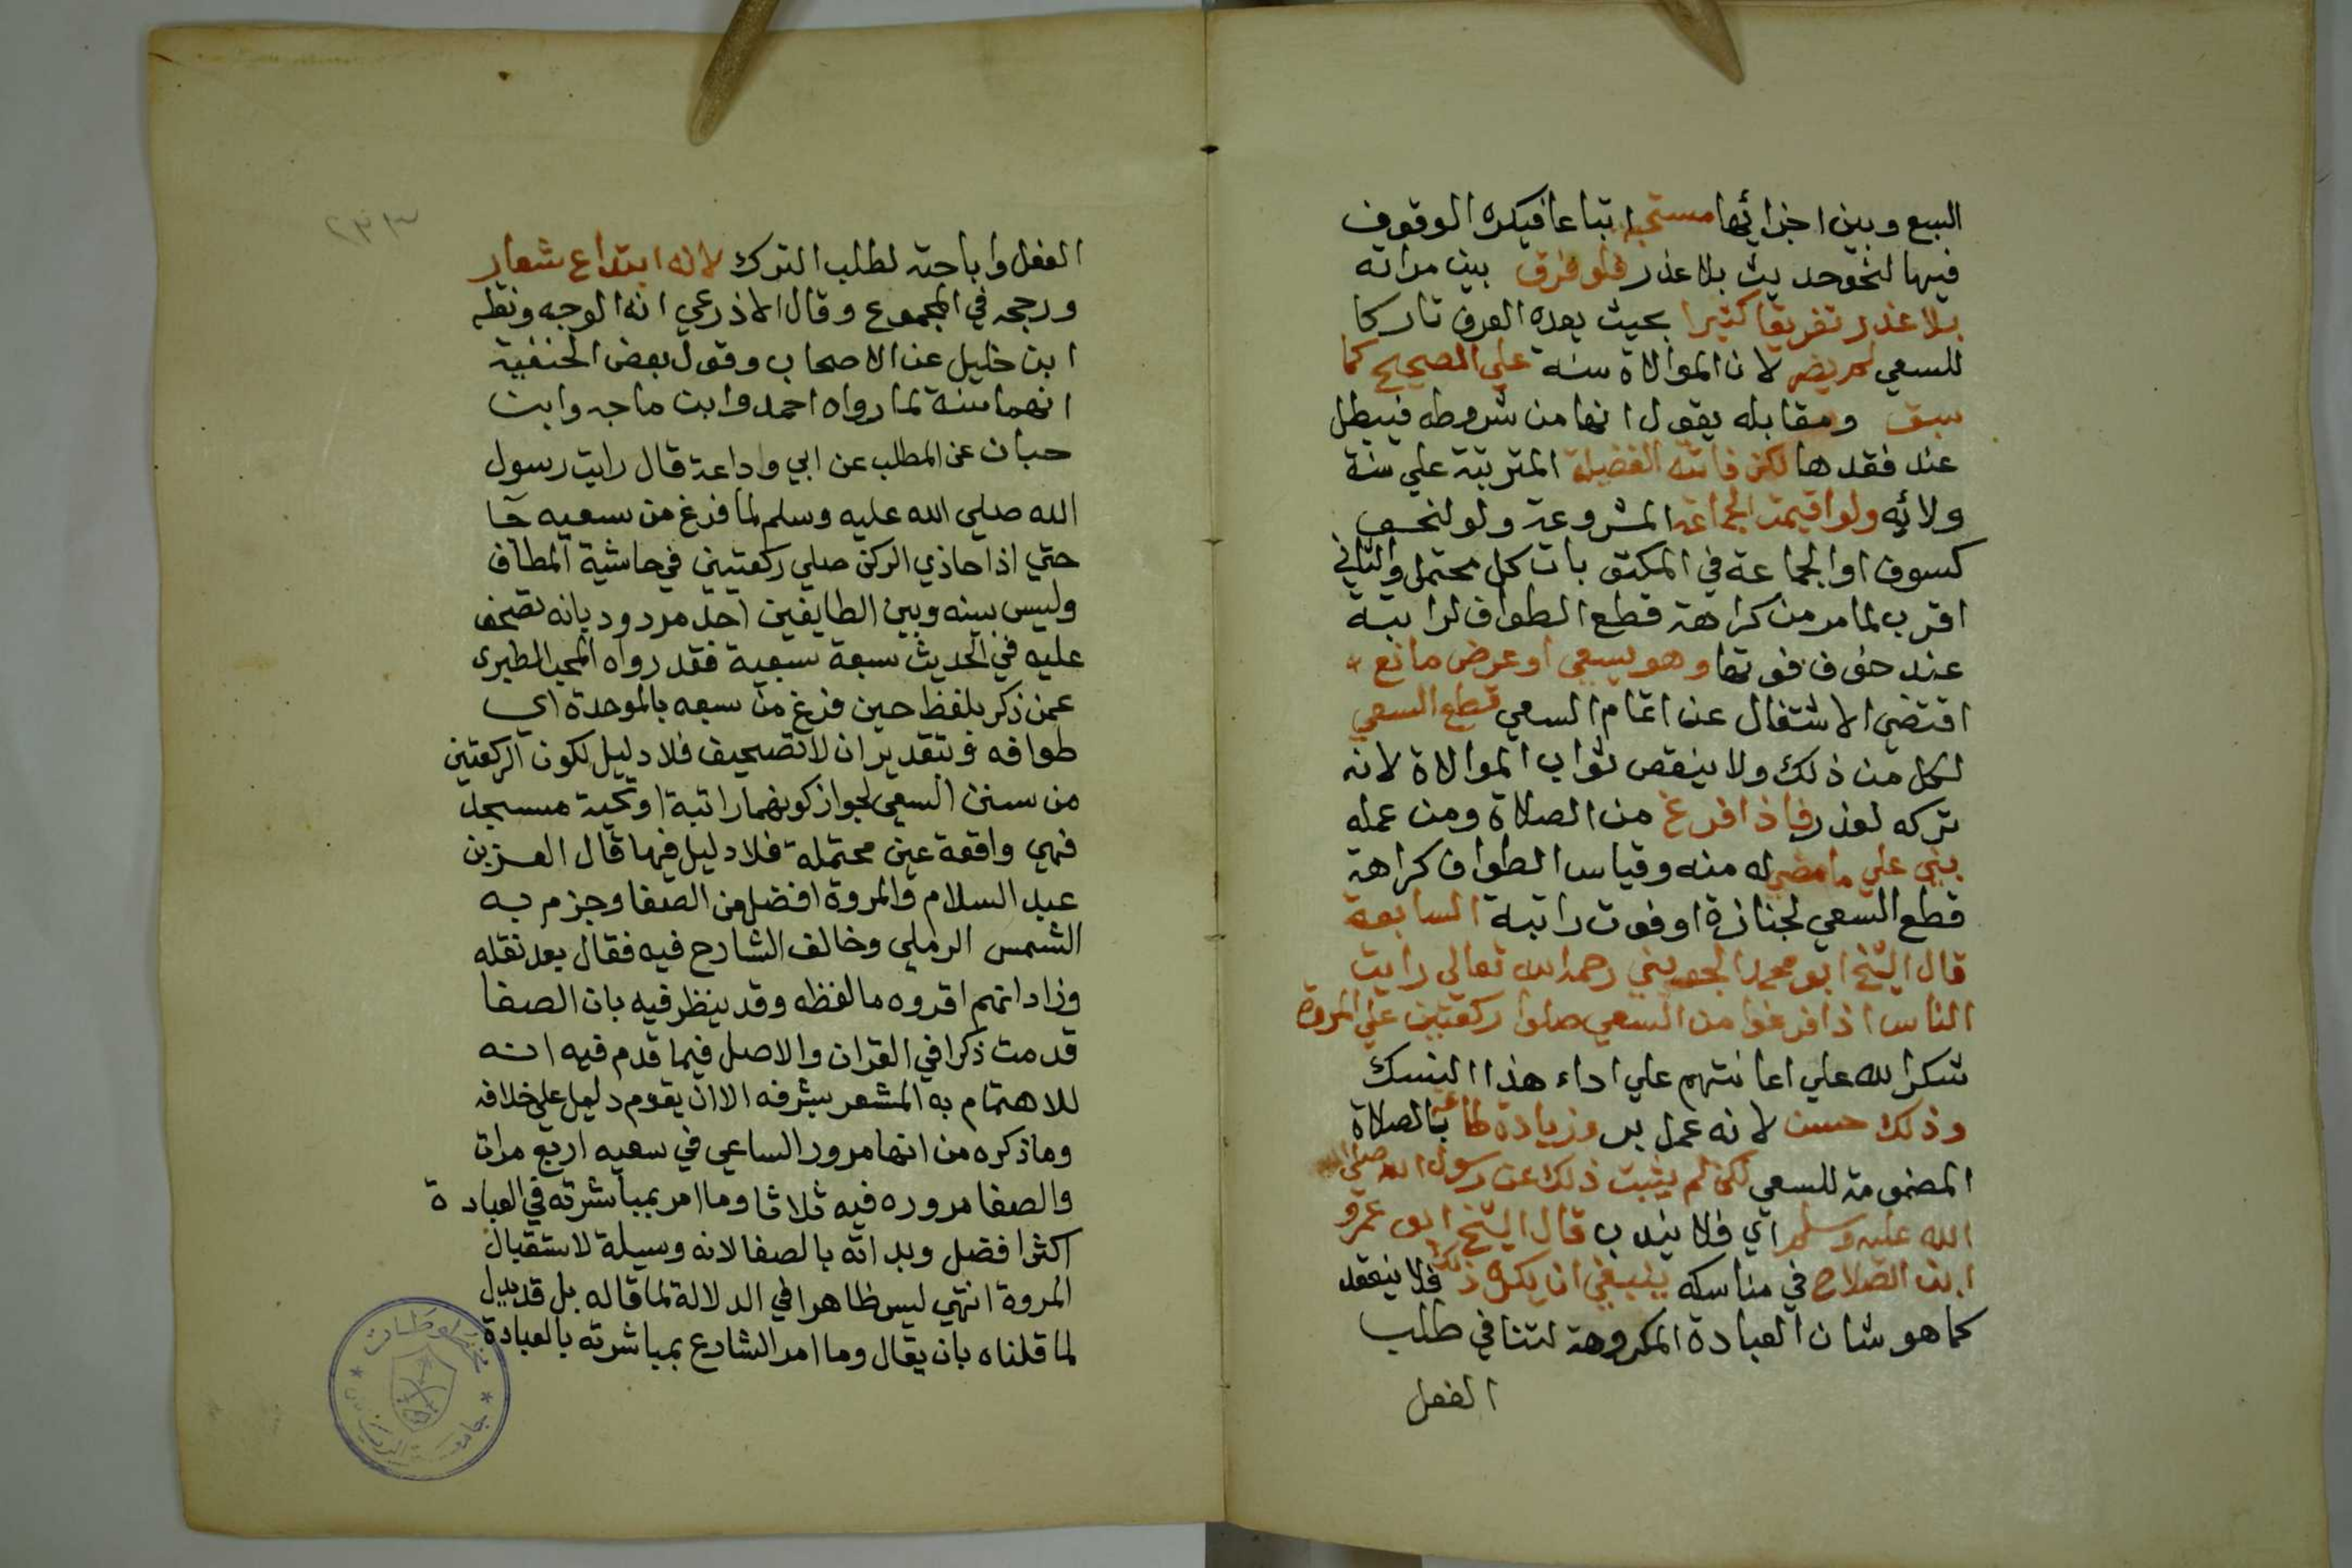 السبع وبين اجزائها مستحبة اتباعا فيكره الوقوف
فيها لنحو حديث بلا عذر فلو فرق بين مراته
بلا عذر تفريقا كثيرا بحيث يعده العرف تاركا
للسعي لم يضر لان الموالاة سنة علي الصحيح كما
سبق ومقابله يقول انها من شروطه فيبطل
عند فقدها لكن فاتته الفضيلة المترتبة علي سنة
ولائه ولو اقيمت الجماعة المشروعة ولو لنحو
كسوف او الجماعة في المكتوبات كل محتمل والثاني
اقرب لما مر من كراهة قطع الطواف لراتبة
عند خوف فوتها وهو يسعي او عرض مانع
اقتضي الاشتغال عن اتمام السعي قطع السعي
لكل من ذلك ولا ينقص ثواب الموالاة لانه
تركه لعذر فاذا فرغ من الصلاة ومن عمله
بني علي ما مضي له منه وقياس الطواف كراهة
قطع السعي لجنازة او فوت راتبة السابعة
قال الشيخ ابو محمد الجويني رحمه الله تعالي رايت
الناس اذا فرغوا من السعي صلوا ركعتين علي المروة
شكرا لله علي اعانتهم علي اداء هذا النسك
وذلك حسن لانه عمل بر وزيادة طاعة بالصلاة
المضمومة للسعي لكن لم يثبت ذلك عن رسول الله صلي
الله عليه وسلم اي فلا يندب قال الشيخ ابو عمرو
ابن الصلاح في مناسكه ينبغي ان يكره ذلك فلا ينعقد
كما هو شان العبادة المكروهة لتنافي طلب
الفعل
٢٣٣
الفعل واباحته لطلب الترك لانه ابتداع شعار
ورجحه في المجموع وقال الاذرعي انه الوجه ونقله
ابن خليل عن الاصحاب وقول بعض الحنفية
انهما سنة لما رواه احمد وابن ماجه وابن
حبان عن المطلب عن ابي واداعة قال رايت رسول
الله صلي الله عليه وسلم لما فرغ من سعيه جا
حتي اذا حاذي الركن صلي ركعتين في حاشية المطاف
وليس بينه وبين الطايفين احد مردود بانه تصحف
عليه في الحديث سبعة سعيه فقد رواه المحب الطبري
عمن ذكر بلفظ حين فرغ من سبعه بالموحدة اي
طوافه وبتقدير ان لا تصحيف فلا دليل لكون الركعتين
من سنن السعي لجواز كونهما راتبة او تحية مسجد
فهي واقعة عين محتملة فلا دليل فيها قال العز بن
عبد السلام والمروة افضل من الصفا وجزم به
الشمس الرملي وخالف الشارح فيه فقال بعد نقله
وزاد انهم اقروه ما لفظه وقد ينظر فيه بان الصفا
قدمت ذكرا في القران والاصل فيما قدم فيه انه
للاهتمام به المشعر بشرفه الا ان يقوم دليل علي خلافه
وما ذكره من انها مرور الساعي في سعيه اربع مرات
والصفا مروره فيه ثلاثا وما امر بمباشرته في العبادة
اكثر افضل وبداته بالصفا لانه وسيلة لاستقبال
المروة انتهي ليس ظاهرا في الدلالة لما قاله بل قد يدل
لما قلناه بان يقال وما امر الشارع بمباشرته بالعبادة